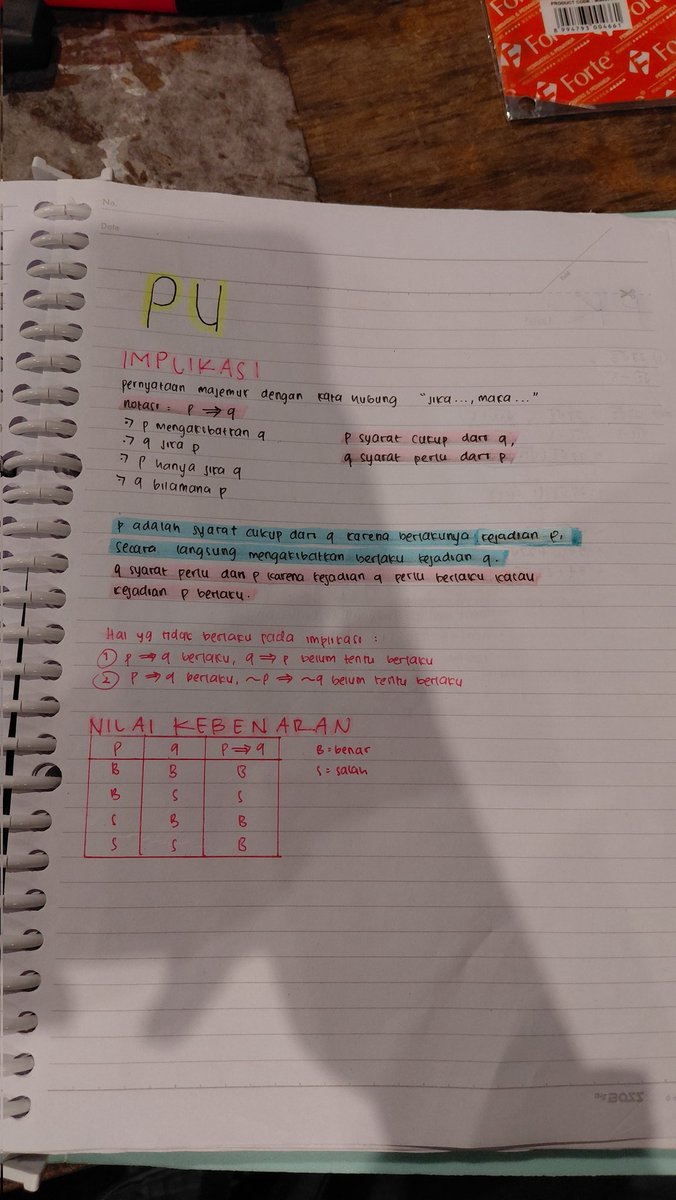 PRODUCT CODE: 
8 994793 004661
Forte
Forte
Forte
No.
Date
PU
IMPLIKASI
pernyataan majemuk dengan kata hubung "jika..., maka..."
notasi : p ⇒ q
→ p mengakibatkan q
p syarat cukup dari q,
→ q jika p
q syarat perlu dari p,
→ p hanya jika q
→ q bilamana p
p adalah syarat cukup dari q karena berlakunya kejadian p,
secara langsung mengakibatkan berlaku kejadian q.
q syarat perlu dari p karena kejadian q perlu berlaku kalau
kejadian p berlaku.
Hal yg tidak berlaku pada implikasi :
① p ⇒ q berlaku, q ⇒ p belum tentu berlaku
② p ⇒ q berlaku, ~p ⇒ ~q belum tentu berlaku
NILAI KEBENARAN
p q p ⇒ q B = benar
B B B S = salah
B S S
S B B
S S B
BOZZ